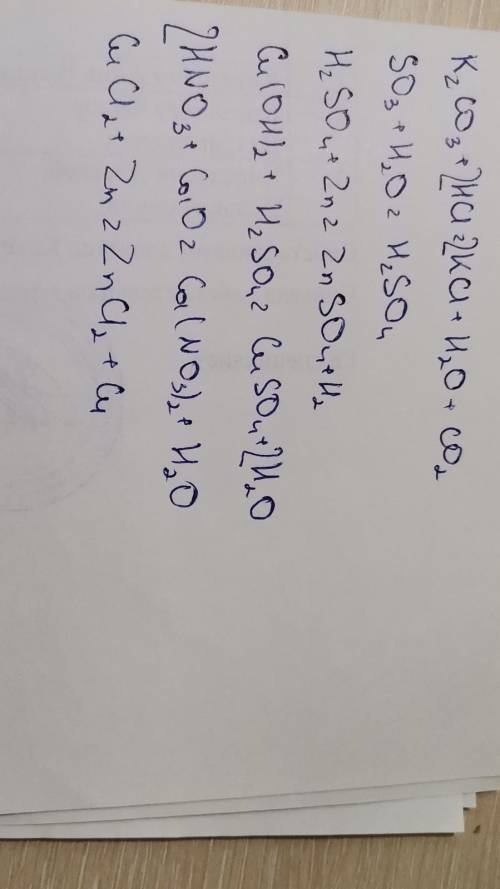 K₂CO₃ + 2HCl = 2KCl + H₂O + CO₂
SO₃ + H₂O = H₂SO₄
H₂SO₄ + Zn = ZnSO₄ + H₂
Cu(OH)₂ + H₂SO₄ = CuSO₄ + 2H₂O
2HNO₃ + CaO = Ca(NO₃)₂ + H₂O
CuCl₂ + Zn = ZnCl₂ + Cu